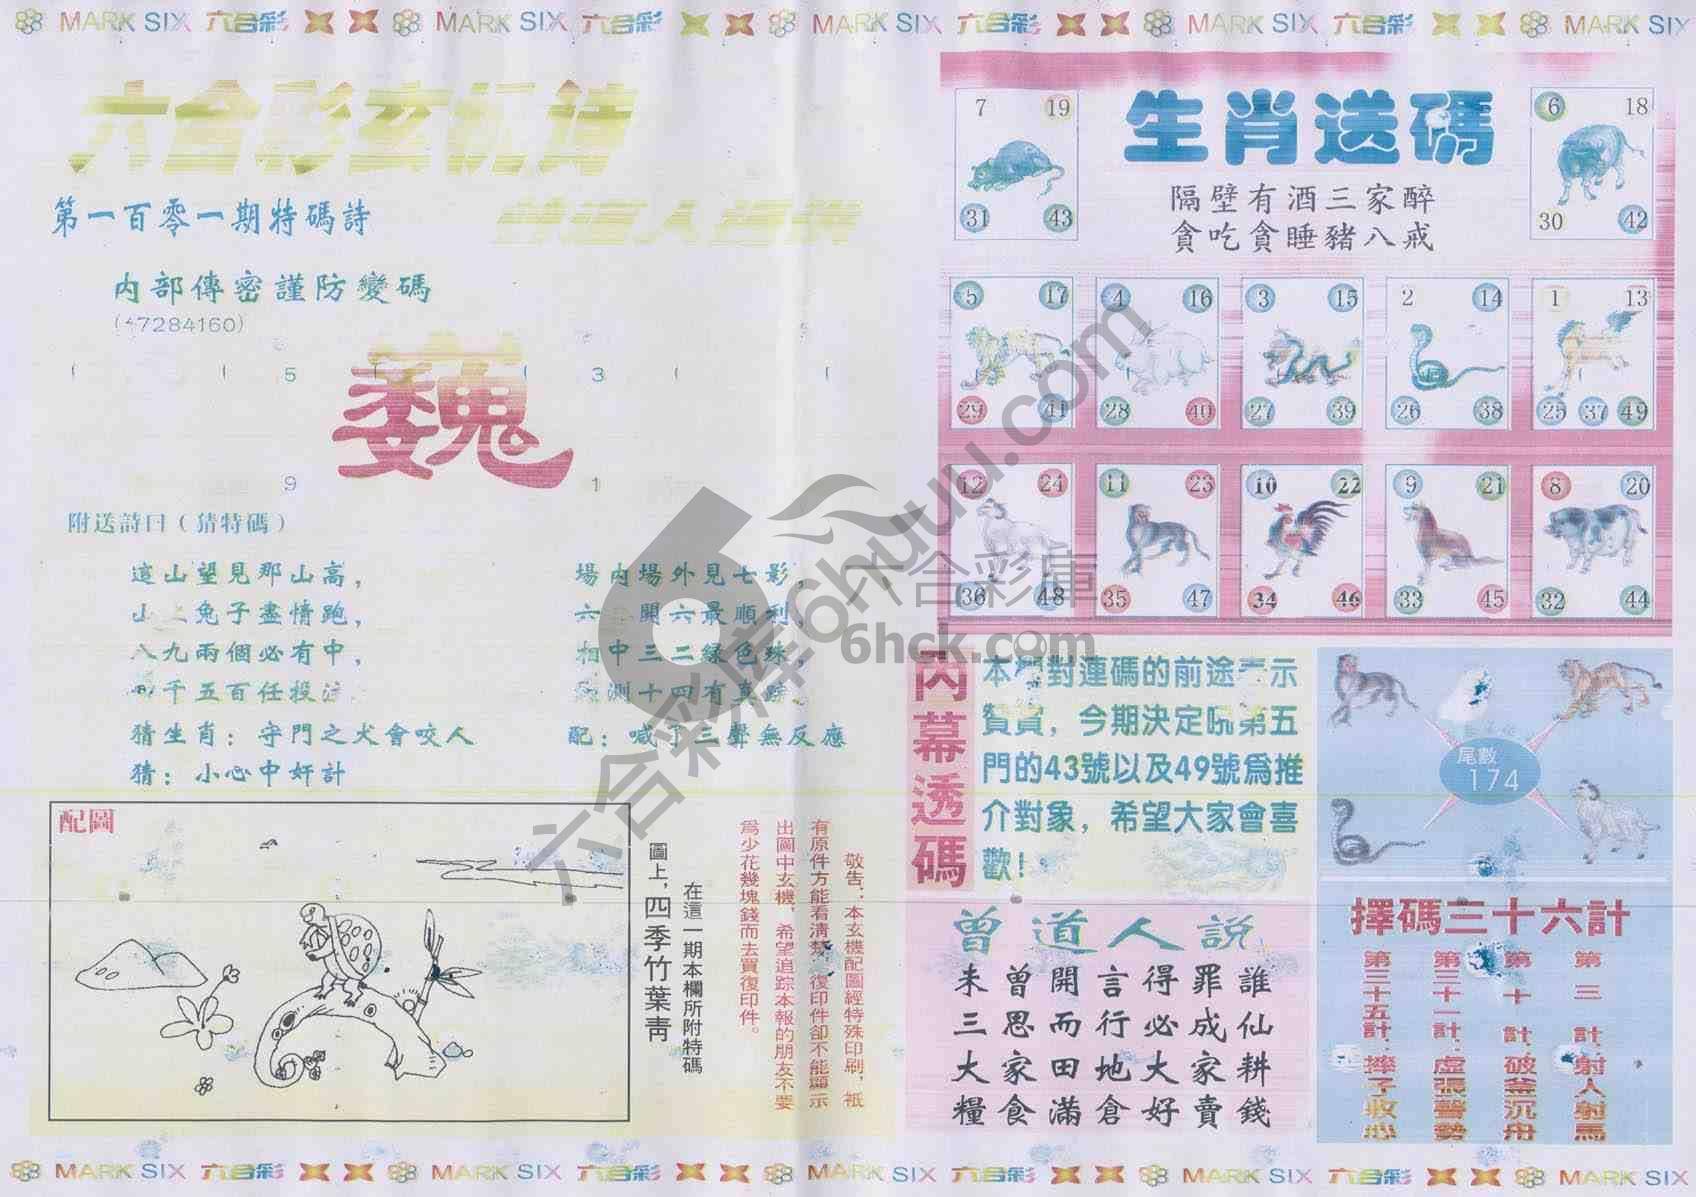 MARK SIX 六合彩 MARK SIX 六合彩 MARK SIX 六合彩 MARK SIX 六合彩 MARK SIX
六合彩玄机诗
第一百零一期特碼詩
曾道人提供
内部傳密謹防變碼
7284160)
5 3
巍
9 1
附送詩曰（猜特碼）
這山望見那山高，
兔子盡情跑，
八九兩個必有中，
千五百任投注
場内場外見七影，
開六最順利，
相中三二綠色珠，
測十四有真
猜生肖：守門之犬會咬人
配：喊了三聲無反應
猜：小心中奸計
配圖
在這一期本欄所附特碼
圖上，四季竹葉靑
敬告：本玄機配圖經特殊印刷，祇
有原件方能看清楚，復印件卻不能顯示
出圖中玄機，希望追踪本報的朋友不要
爲少花幾塊錢而去買復印件。
生肖送碼
隔壁有酒三家醉
貪吃貪睡豬八戒
7 19
31 43
6 18
30 42
5 17
29 41
4 16
28 40
3 15
27 39
2 14
26 38
1 13
25 37 49
12 24
36 48
11 23
35 47
10 22
34 46
9 21
33 45
8 20
32 44
内幕透碼
對連碼的前途表示
贊賞，今期決定吼第五
門的43號以及49號爲推
介對象，希望大家會喜
歡！
尾數
174
曾道人説
朱曾開言得罪誰
三思而行必成仙
大家田地大家耕
糧食滿倉好賣錢
擇碼三十六計
第三計：射人射馬
第十計：破釜沉舟
第三十一計：虛張聲勢
第三十五計：摔子收心
六合彩库6huuu.com
六合彩庫
6hck.com
MARK SIX 六合彩 MARK SIX 六合彩 MARK SIX 六合彩 MARK SIX 六合彩 MARK SIX